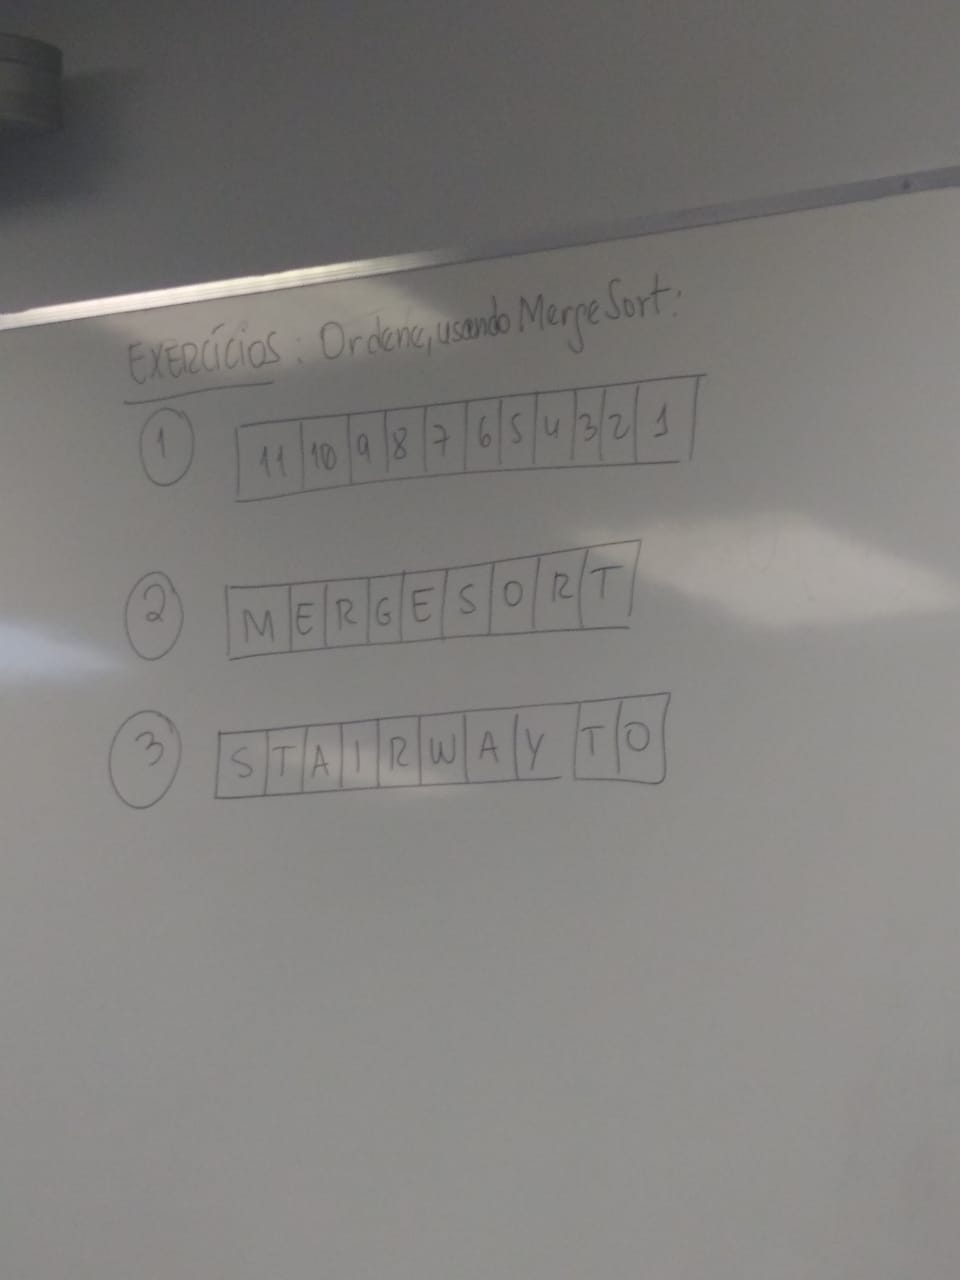 EXERCÍCIOS: Ordene, usando MergeSort:
1 11 10 9 8 7 6 5 4 3 2 1
2 M E R G E S O R T
3 S T A I R W A Y T O